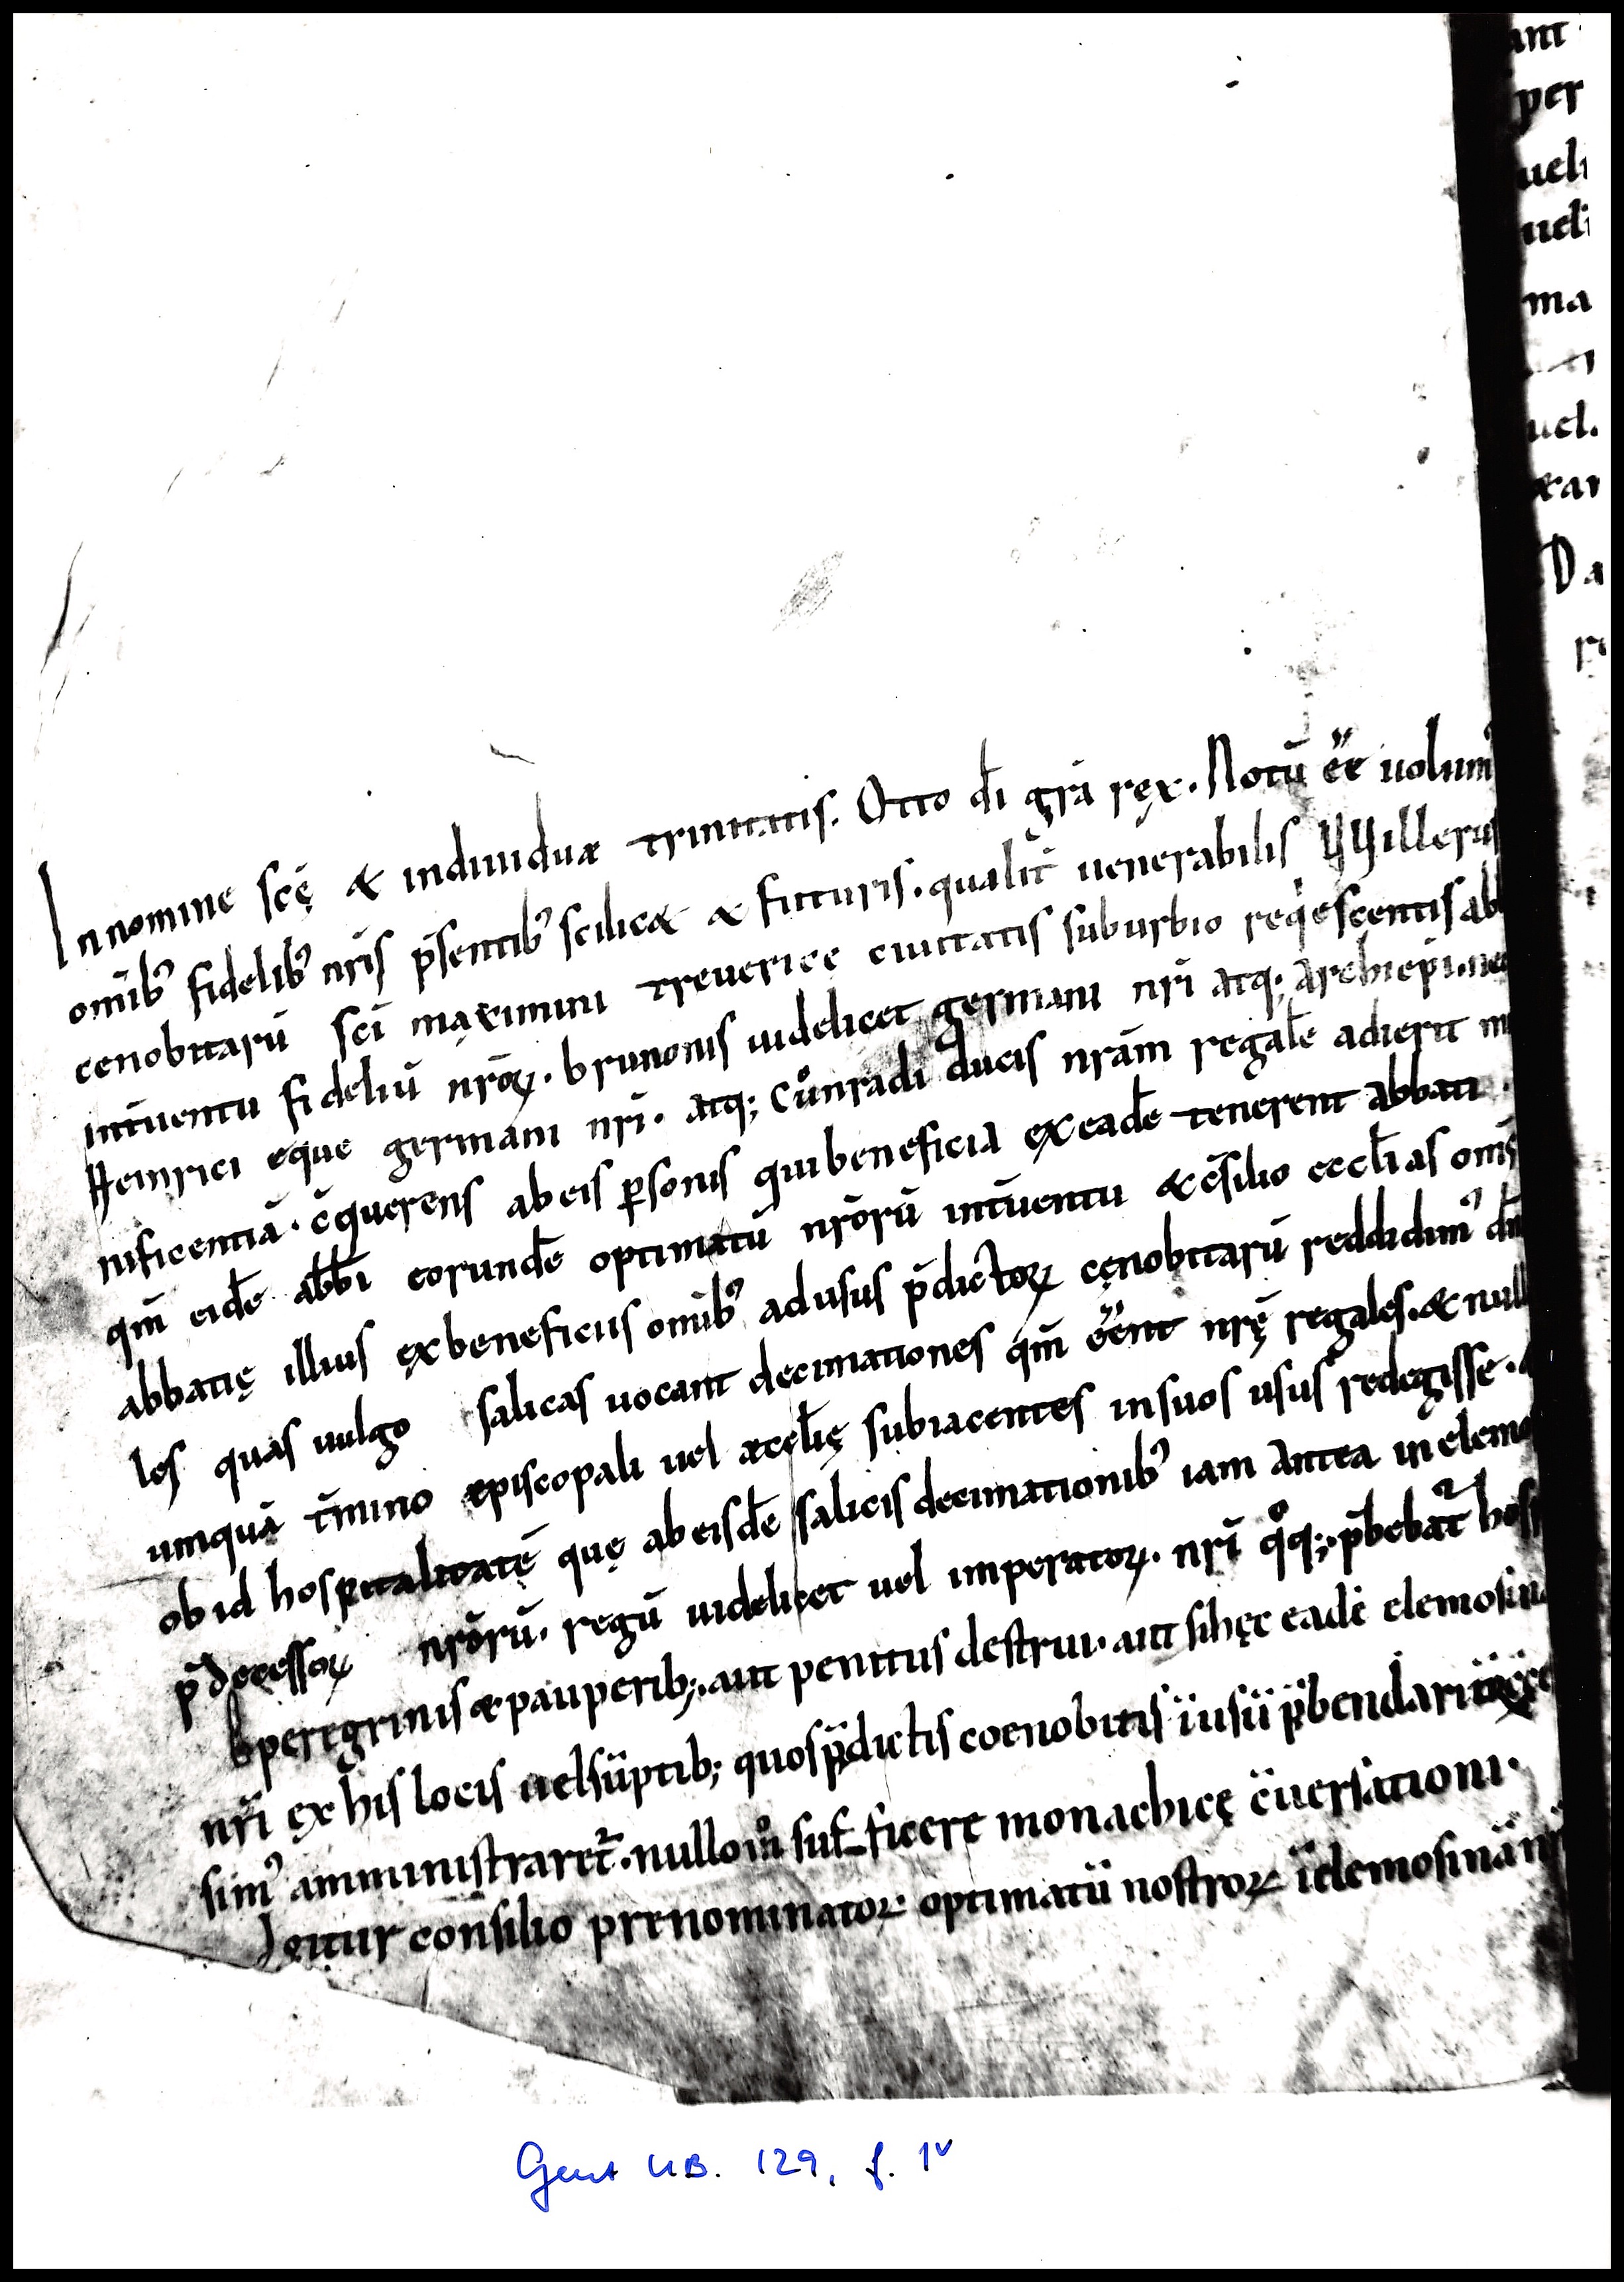 In nomine scę & indiuiduæ trinitatis. Otto dī grā rex. Notū ēē uolum᾿
omīb᾿ fidelib᾿ nrīs p̄sentib᾿ scilic& & futuris. qualit̄ uenerabilis VVillerus
cenobitarū scī maximini treuericę ciuitatis suburbio reqescentis abb
int̄uentu fideliū nrōꝝ. brunonis uidelicet germani nrī atq; archiepī. nec
Heinrici eque germani nrī. atq; Cůnradi ducis nrām regalē adierit m
nificentiā. c̄querens ab eis ꝑsonis qui beneficia ex eadē tenerent abbati
qm̄ eidē abb̄i eorundē optimatū nrōrū int̄uentu & c̄silio eccl̄ias omīs
abbatię illius ex beneficiis omīb᾿ ad usus p̄dictoꝝ cęnobitarū reddidim᾿ dn̄
les quas uulgo salicas uocant decimationes qm̄ ēēnt nrę̄ regales. & null
umquā t̄mino episcopali uel æccl̄ię subiacentes in suos usus redegisse.
ob id hospitalitatē quę ab eisdē salicis decimationib᾿ iam antea in elemo
p̄decessoꝝ nrōrū. regū uidelicet uel imperatoꝝ. nrī qͦq; p̄bebat᷑ hos
peregrinis & pauperib;. aut penitus destrui. aut si hęc eadē elemosina
nrī ex his locis uel sūptib; quos p̄dictis coenobitis ī usū p̄bendariū
sim᾿ amministraret᷑. nullom͛ sufficere monachicę c̄uersationi.
Igitur consilio prenominatoꝝ optimatū nostroꝝ ī elemosinā n
ant
per
ueli
ueli
ma
uel.
Da
Gent UB. 129, f. 1v